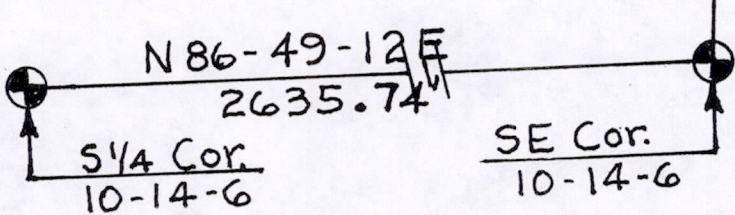 N 86-49-12 E
2635.74'
S 1/4 Cor.
10-14-6
SE Cor.
10-14-6